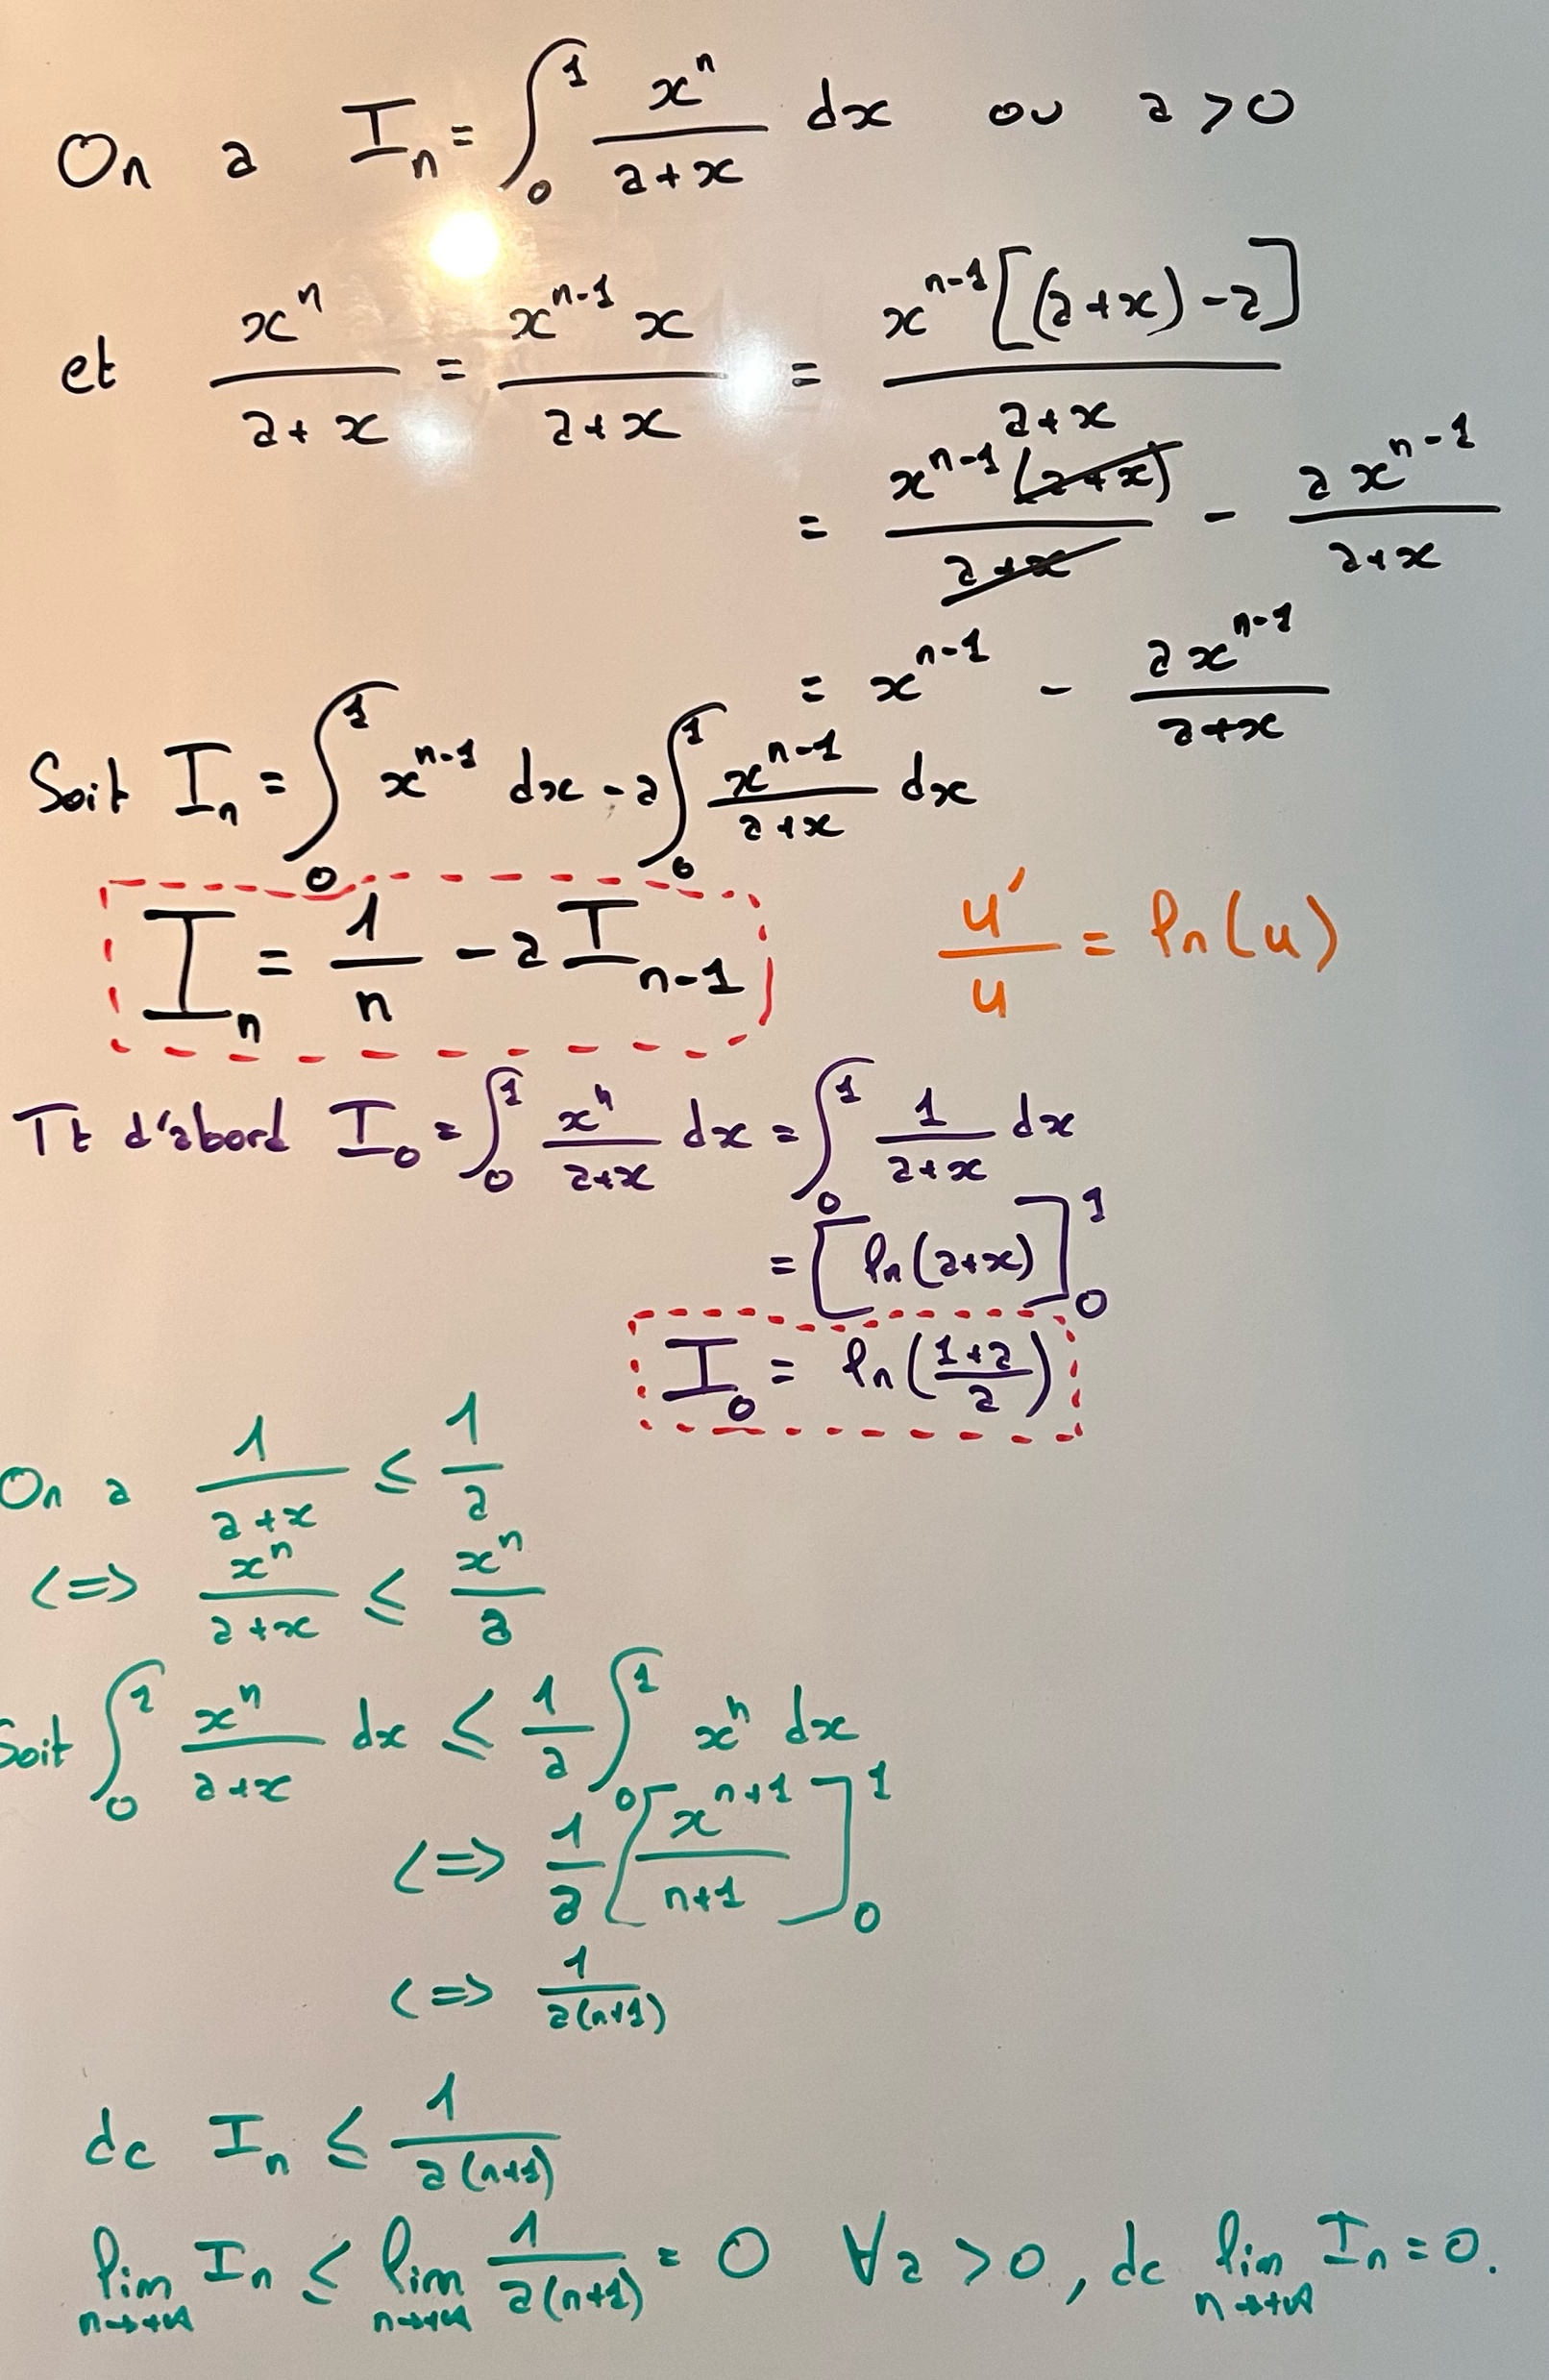 On a I_n = ∫_0^1 x^n/(a+x) dx ou a > 0
et x^n/(a+x) = x^{n-1} x/(a+x) = x^{n-1}[(a+x)-a]/(a+x)
= x^{n-1}(a+x)/(a+x) - a x^{n-1}/(a+x)
= x^{n-1} - a x^{n-1}/(a+x)
Soit I_n = ∫_0^1 x^{n-1} dx - a ∫_0^1 x^{n-1}/(a+x) dx
I_n = 1/n - a I_{n-1}
u'/u = ln(u)
Tt d'abord I_0 = ∫_0^1 x^n/(a+x) dx = ∫_0^1 1/(a+x) dx
= [ln(a+x)]_0^1
I_0 = ln((1+a)/a)
On a 1/(a+x) ≤ 1/a
<=> x^n/(a+x) ≤ x^n/a
Soit ∫_0^1 x^n/(a+x) dx ≤ 1/a ∫_0^1 x^n dx
<=> 1/a [x^{n+1}/(n+1)]_0^1
<=> 1/(a(n+1))
dc I_n ≤ 1/(a(n+1))
lim_{n→+∞} I_n ≤ lim_{n→+∞} 1/(a(n+1)) = 0 ∀a > 0, dc lim_{n→+∞} I_n = 0.